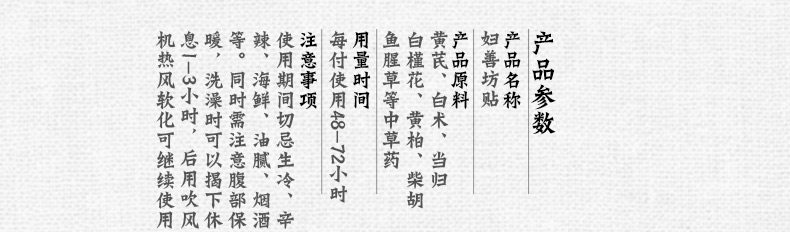 产品参数
产品名称
妇善坊贴
产品原料
黄芪、白术、当归
白槿花、黄柏、柴胡
鱼腥草等中草药
用量时间
每付使用48-72小时
注意事项
使用期间切忌生冷、辛
辣、海鲜、油腻、烟酒
等。同时需注意腹部保
暖，洗澡时可以揭下休
息1-3小时，后用吹风
机热风软化可继续使用